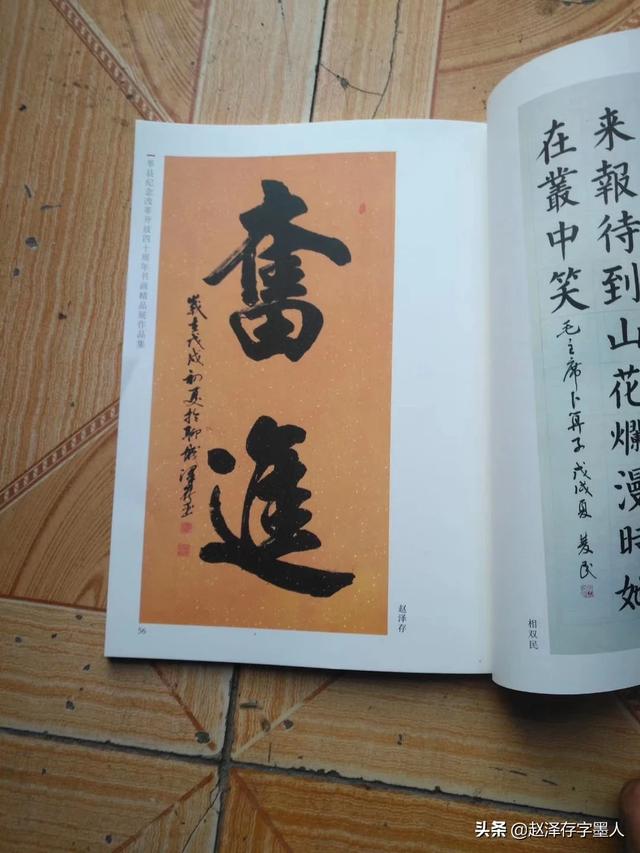 莘县纪念改革开放四十周年书画精品展作品集
奮進
歲在戊戌初夏於聊城澤存
赵泽存
56
来報待到山花爛漫時她
在叢中笑
毛主席卜算子戊戌夏双民
相双民
头条 @赵泽存字墨人